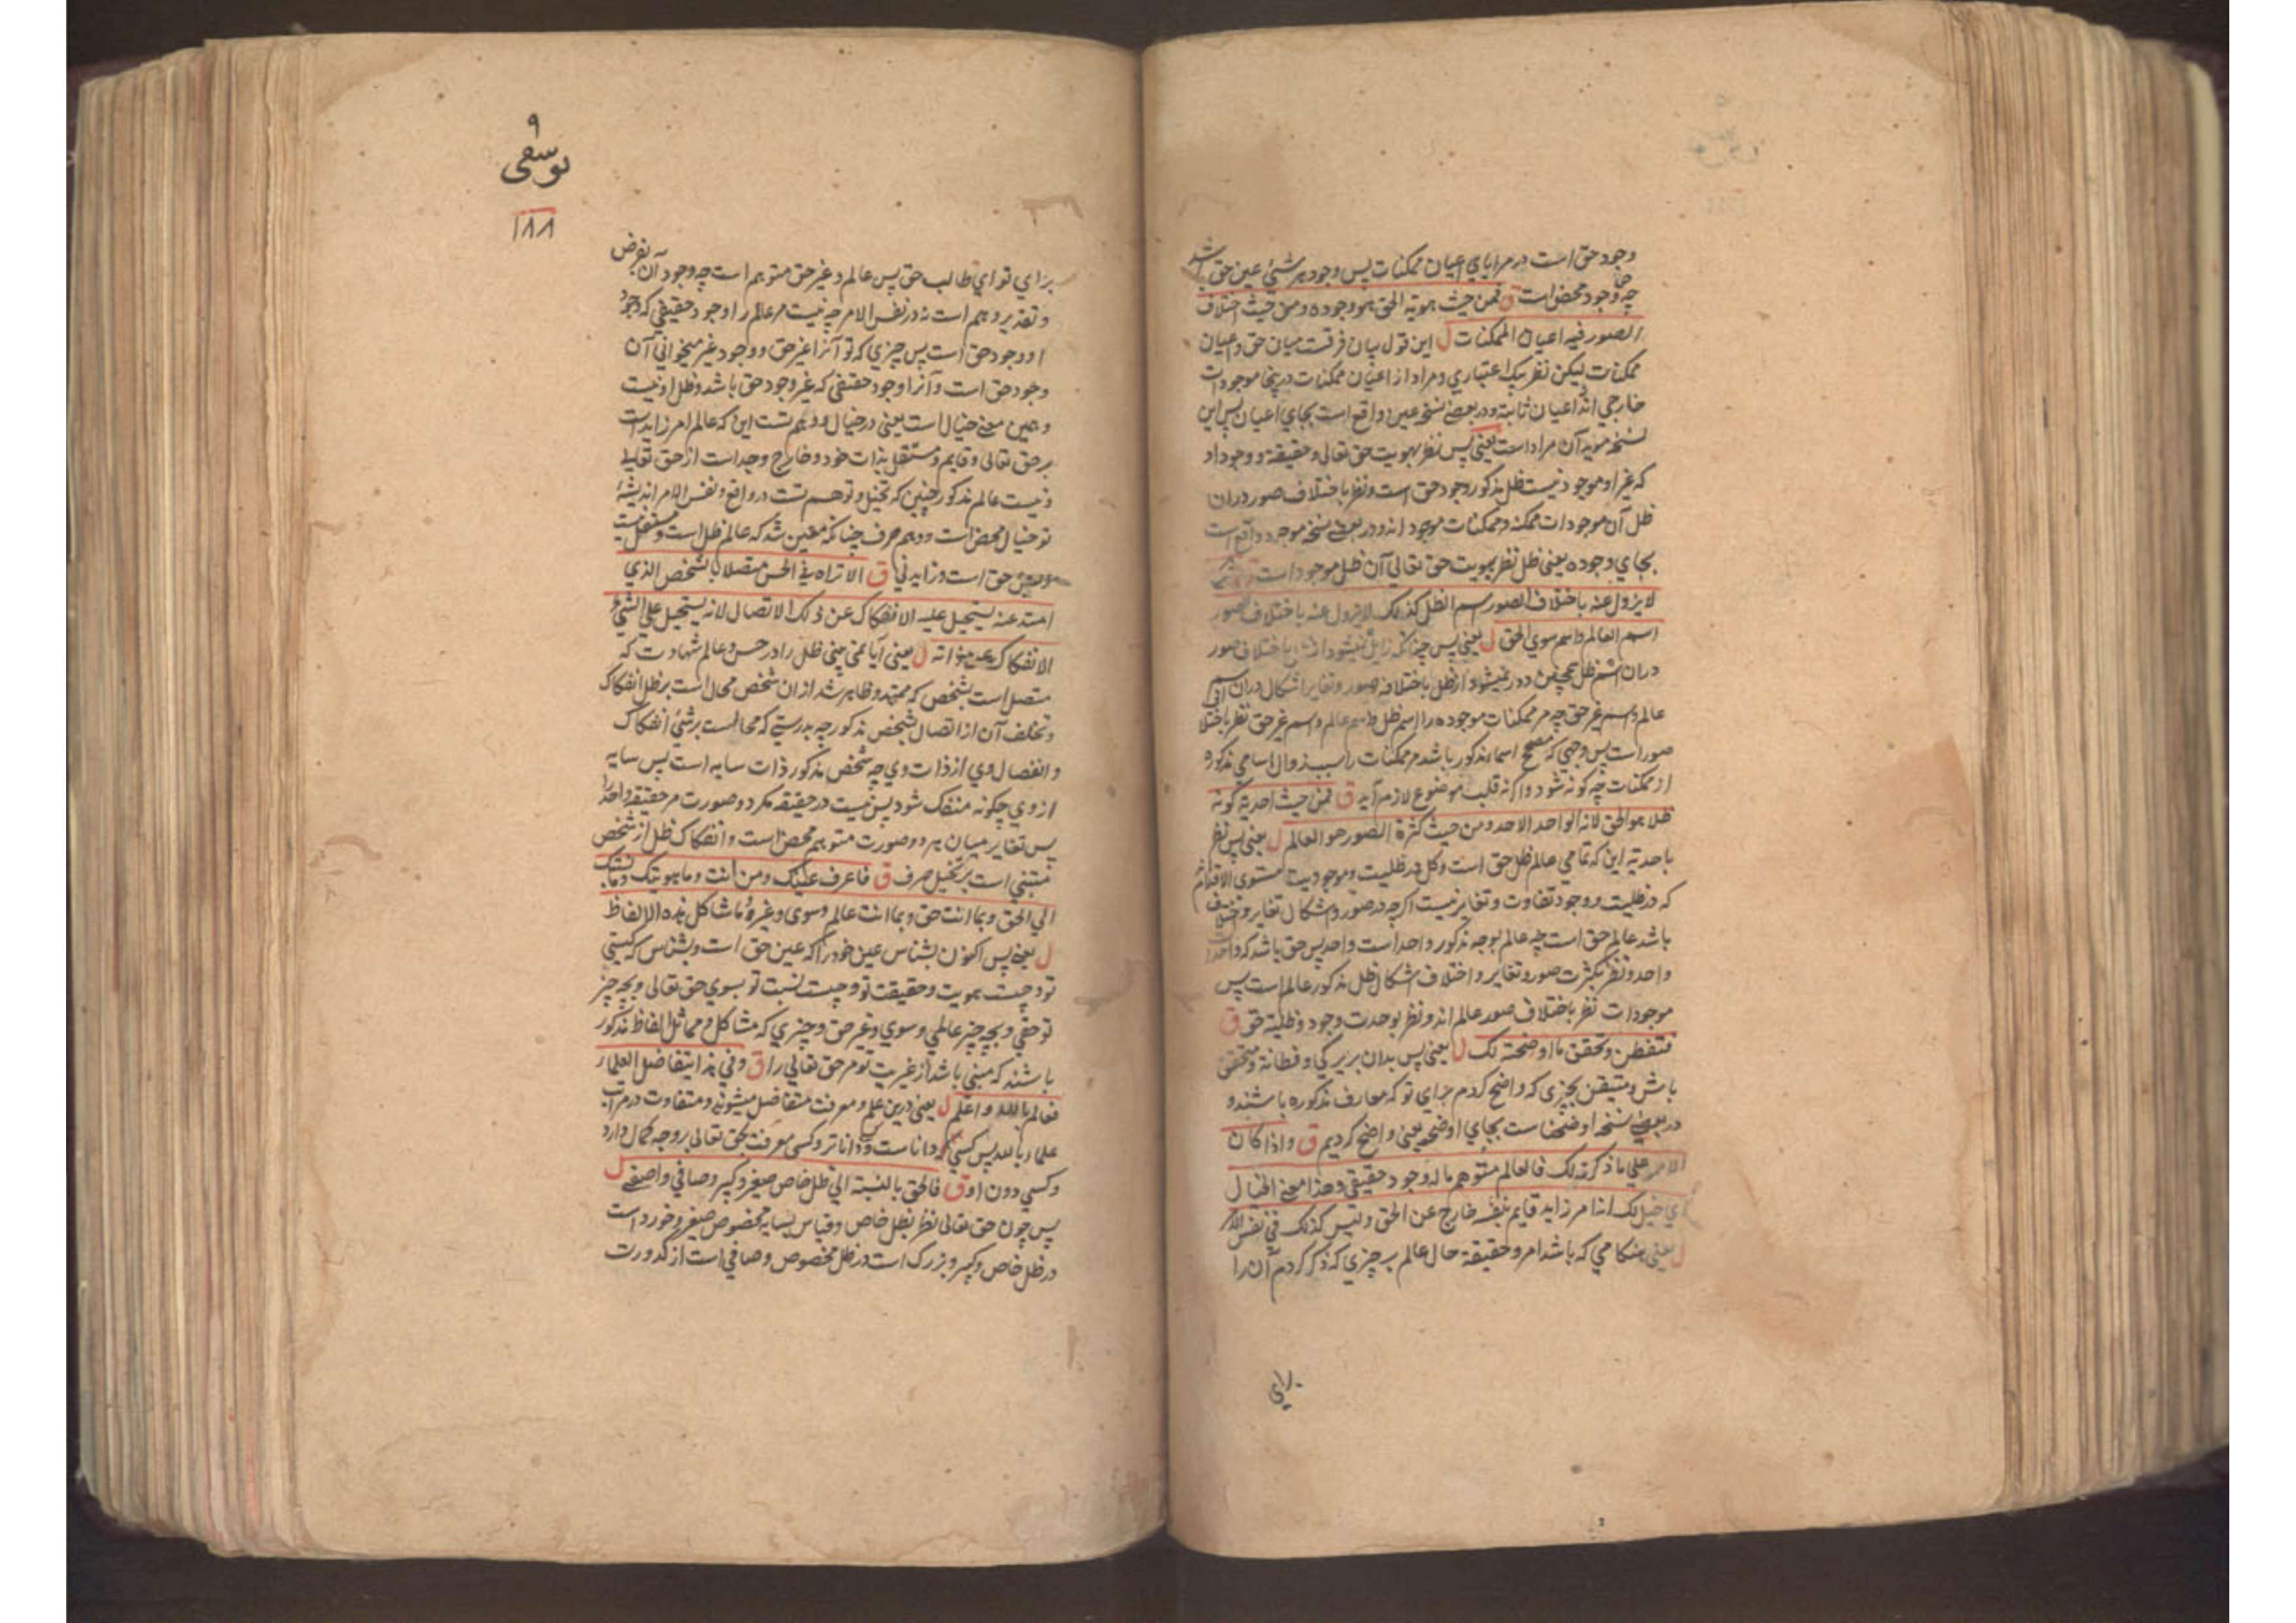 وجود حق است در مرایای اعیان ممکنات پس وجود هر شیئ عین حق باشد
چه وجود محض است ق فمن حیث هویة الحق هو وجوده ومن حیث اختلاف
الصور فیه اعیان الممکنات ل این قول بیان فرقست میان حق و اعیان
ممکنات لیکن نظر بیک اعتباری و مراد از اعیان ممکنات درینجا موجودات
خارجی اند اعیان ثابته و در بعضے نسخه عین واقع است بجای اعیان پس این
نسخه موید آن مراد است یعنی پس نظر بهویت حق تعالی و حقیقة و وجود او
که غیر او موجود نیست ظل مذکور وجود حق است و نظر باختلاف صور دران
ظل آن موجودات ممکنه و ممکنات موجود اند و در بعضے نسخه موجود واقع است
بجای وجوده یعنی ظل نظر بهویت حق تعالی آن ظل موجود است
لا یزول عنه باختلاف الصور اسم الظل کذلک لا یزول عنه باختلاف الصور
اسم العالم و اسم سوی الحق ل یعنی پس چنانکه زایل نمیشود از ظل باختلاف صور
دران اسم ظل همچنین دور نمیشود از ظل باختلاف صور و تغایر اشکال دران اسم
عالم و اسم غیر حق چه مر ممکنات موجوده را اسم ظل و اسم عالم و اسم غیر حق نظر باختلاف
صور است پس وجهی که مصحح اسماء مذکور باشد مر ممکنات را سبب زوال اسامی مذکوره
از ممکنات چه کونه شود و اگر نه قلب موضوع لازم آید ق فمن حیث احدیة کونه
ظلا هو الحق لانه الواحد الاحد ومن حیث کثرة الصور هو العالم ل یعنی پس نظر
باحدیة این که تمامی عالم ظل حق است و کل در ظلیت و موجودیت مستوی الاقدام
که در ظلیت و وجود تفاوت و تغایر نیست اگرچه در صور و اشکال تغایر و اختلاف
باشد عالم حق است چه عالم بوجه مذکور واحد است و احد پس حق باشد که واحد است
واحد و نظر بکثرت صور و تغایر و اختلاف اشکال ظل مذکور عالم است پس
موجودات نظر باختلاف صور عالم اند و نظر بوحدت وجود و ظلیة حق ق
فتفطن و تحقق ما اوضحته لک ل یعنی پس بدان بزیرکی و فطانة و متحقق
باش و متیقن بچیزی که واضح کردم برای تو که معارف مذکوره باشند و
در بعضے نسخه اوضحنا ست بجای اوضحته یعنی واضح کردیم ق و اذا کان
الامر علی ما ذکرته لک فالعالم متوهم ما له وجود حقیقی و هذا معنے الخیال
ای خیل لک انه امر زاید قایم بنفسه خارج عن الحق و لیس کذلک فی نفس الامر
ل یعنی هنکامی که باشد امر و حقیقة حال عالم بر چیزی که ذکر کردم آن را
برای
۹
یوسفی
۱۸۸
برای تو ای طالب حق پس عالم و غیر حق متوهم است چه وجود آن بفرض
و تقدیر وهم است نه در نفس الامر چه نیست مر عالم را وجود حقیقی که وجود
او وجود حق است پس چیزی که تو آنرا غیر حق و وجود غیر میخوانی آن
وجود حق است و آنرا وجود حقیقی که غیر وجود حق باشد و ظل او نیست
و همین معنے خیال است یعنی در خیال و وهم تست این که عالم امر زاید است
بر حق تعالی و قایم و مستقل بذات خود و خارج و جداست از حق تعالے
و نیست عالم مذکور چنین که تخیل و توهم تست در واقع و نفس الامر اندیشهٔ
تو خیال محض است و وهم صرف چنانکه معین شد که عالم ظل است و مستقل نیست
و عین حق است و زاید نی ق الا تراه فی الحس متصلا بالشخص الذی
امتد عنه یستحیل علیه الانفکاک عن ذلک الاتصال لانه یستحیل علی الشیئ
الانفکاک عن ذاته ل یعنی آیا نمی بینی ظل را در حس و عالم شهادت که
متصل است بشخص که ممتد و ظاهر شد ازان شخص محال است بر ظل انفکاک
و تخلف آن از اتصال شخص مذکور چه بدرستے که محالست بر شیئ انفکاک
و انفصال وی از ذات وی چه شخص مذکور ذات سایه است پس سایه
از وی چگونه منفک شود پس نیست در حقیقة مکر دو صورت مر حقیقة واحد را
پس تغایر میان هر دو صورت متوهم محض است و انفکاک ظل از شخص
مبتنی است بر تخیل صرف ق فاعرف عینک ومن انت وما هویتک وما نسبتک
الی الحق وبما انت حق وبما انت عالم وسوی وغیره وما شاکل هذه الالفاظ
ل یعنے پس اکنون بشناس عین خود را که عین حق است و بشناس که کیستی
تو و چیست هویت و حقیقت تو و چیست نسبت تو بسوی حق تعالی و بچه چیز
تو حقی و بچه چیز عالمی و سوی و غیر حق و چیزی که مشاکل و مماثل الفاظ مذکور
باشند که مبنی باشد از غیریت تو مر حق تعالی را ق وفی هذا یتفاضل العلماء
فعالم بالله و اعلم ل یعنی درین علم و معرفت متفاضل میشوند و متفاوت در مراتب
علماء بالله پس کسی دانا ست و دانا تر و کسی معرفت بحق تعالی بر وجه کمال دارد
و کسی دون او ق فالحق بالنسبة الی ظل خاص صغیر وکبیر وصافی واصفے ل
پس چون حق تعالی نظر بظل خاص و قیاس بسایه مخصوص صغیر و خورد است
در ظل خاص و کبیر و بزرک است در ظل مخصوص و صافی است از کدورت